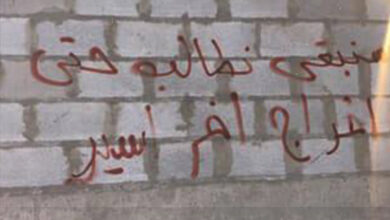 سنبقى نطالب حتى
اخراج اخر اسير